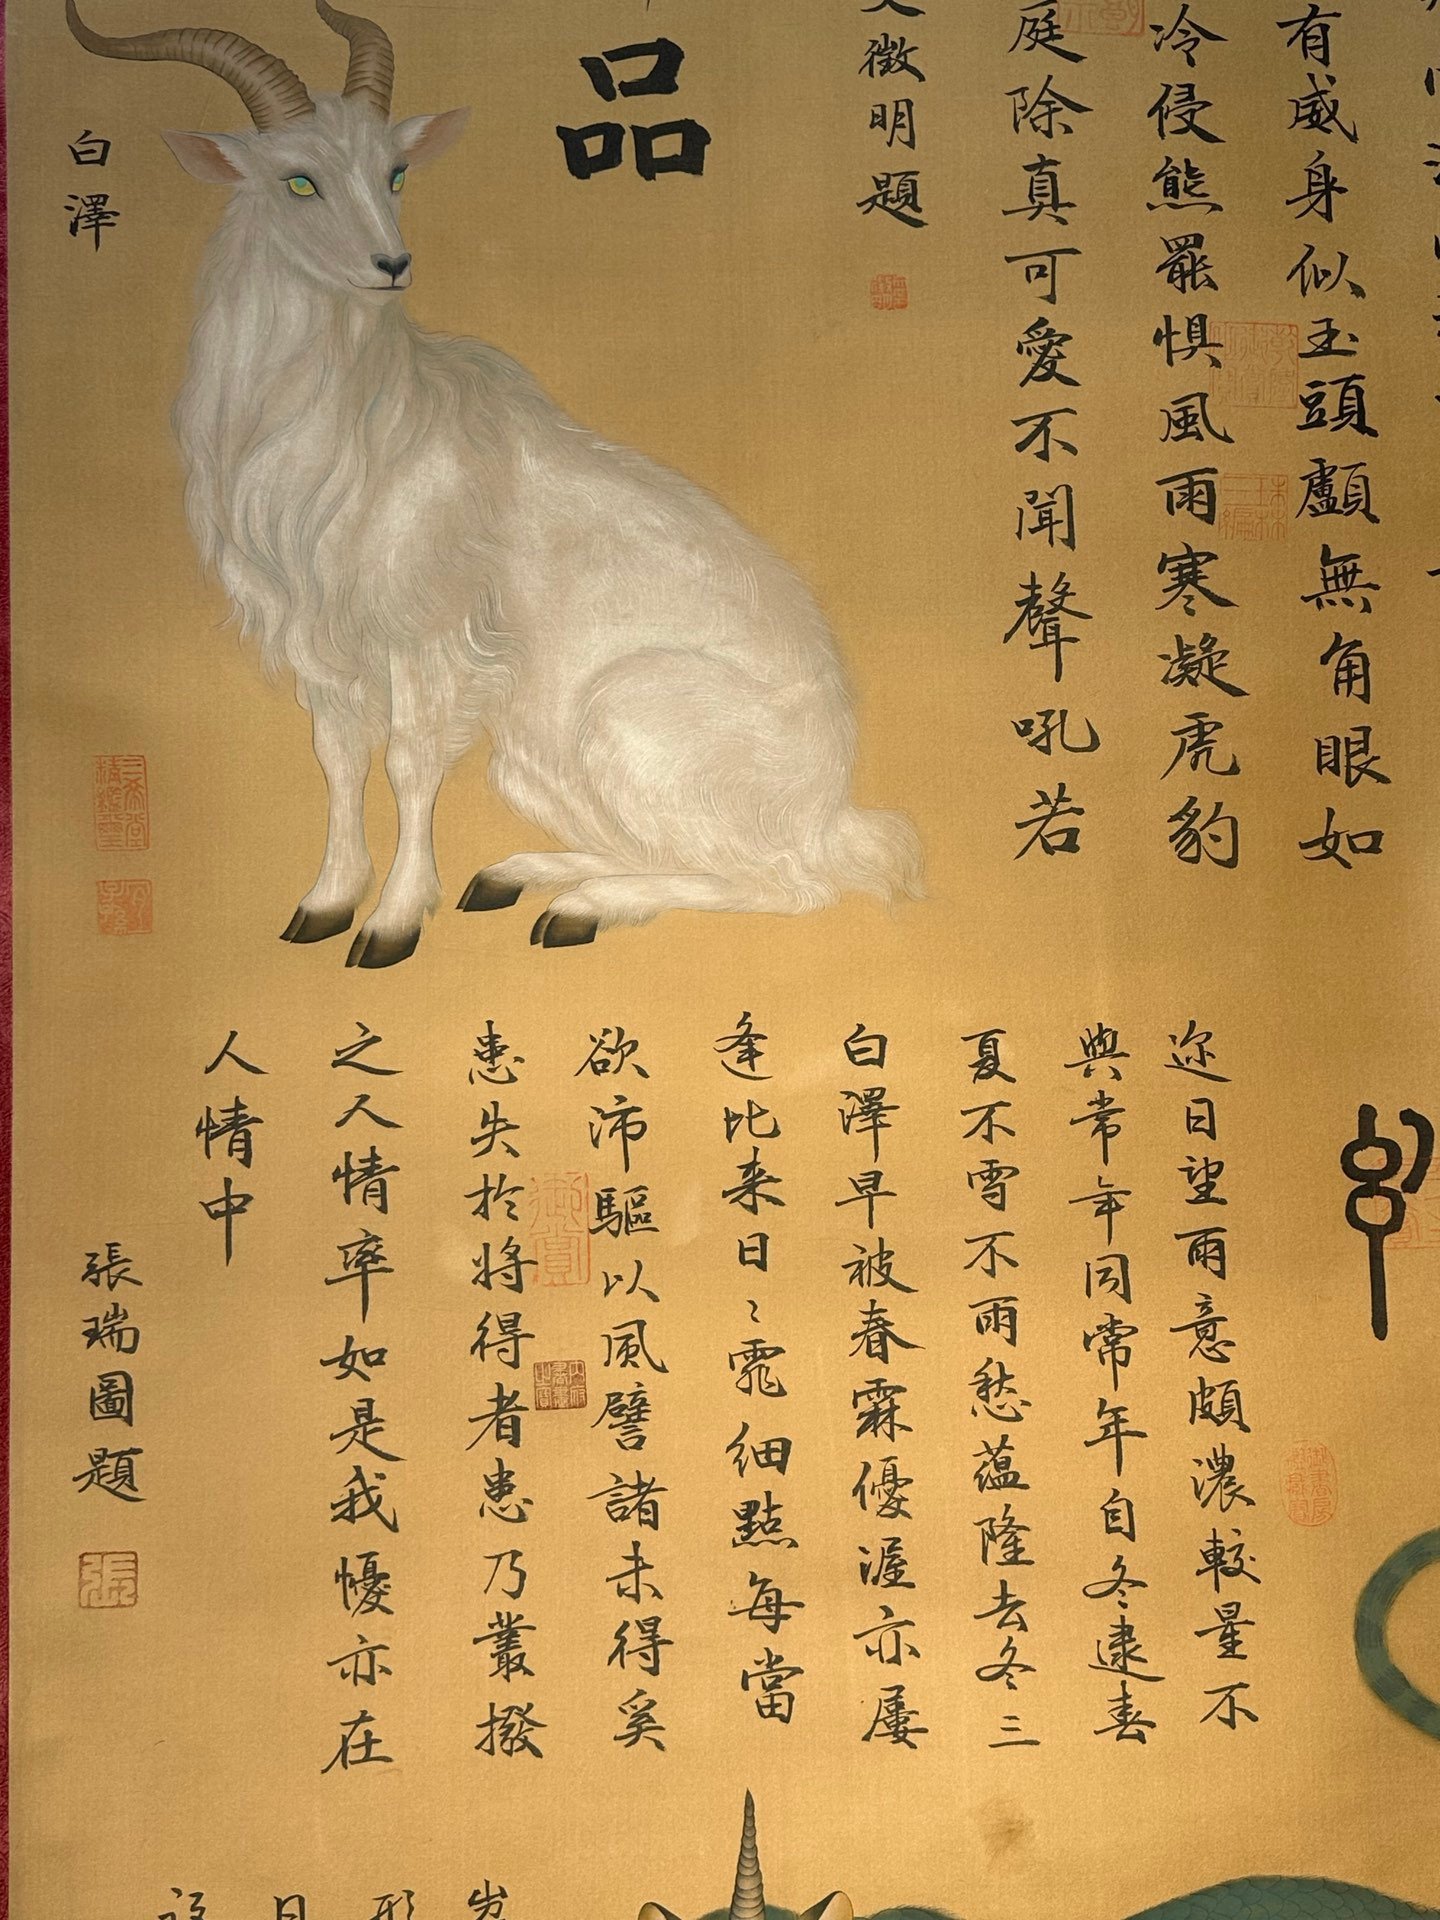 有威身似玉頭顱無角眼如
冷侵熊罷惧風雨寒凝虎豹
庭除真可愛不聞聲吼若
徵明題
品
白澤
迩日望雨意頗濃較量不
與常年同常年自冬逮春
夏不雪不雨愁蘊隆去冬三
白澤早被春霖優渥亦屢
逢比来日〻霏細點每當
欲沛驅以風譬諸未得奚
患失於將得者患乃叢撥
之人情率如是我憂亦在
人情中
張瑞圖題